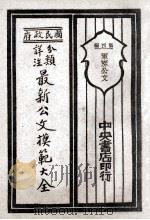 軍界公文
中央書店印行
國民政府
分類
詳注
最新公文模範大全